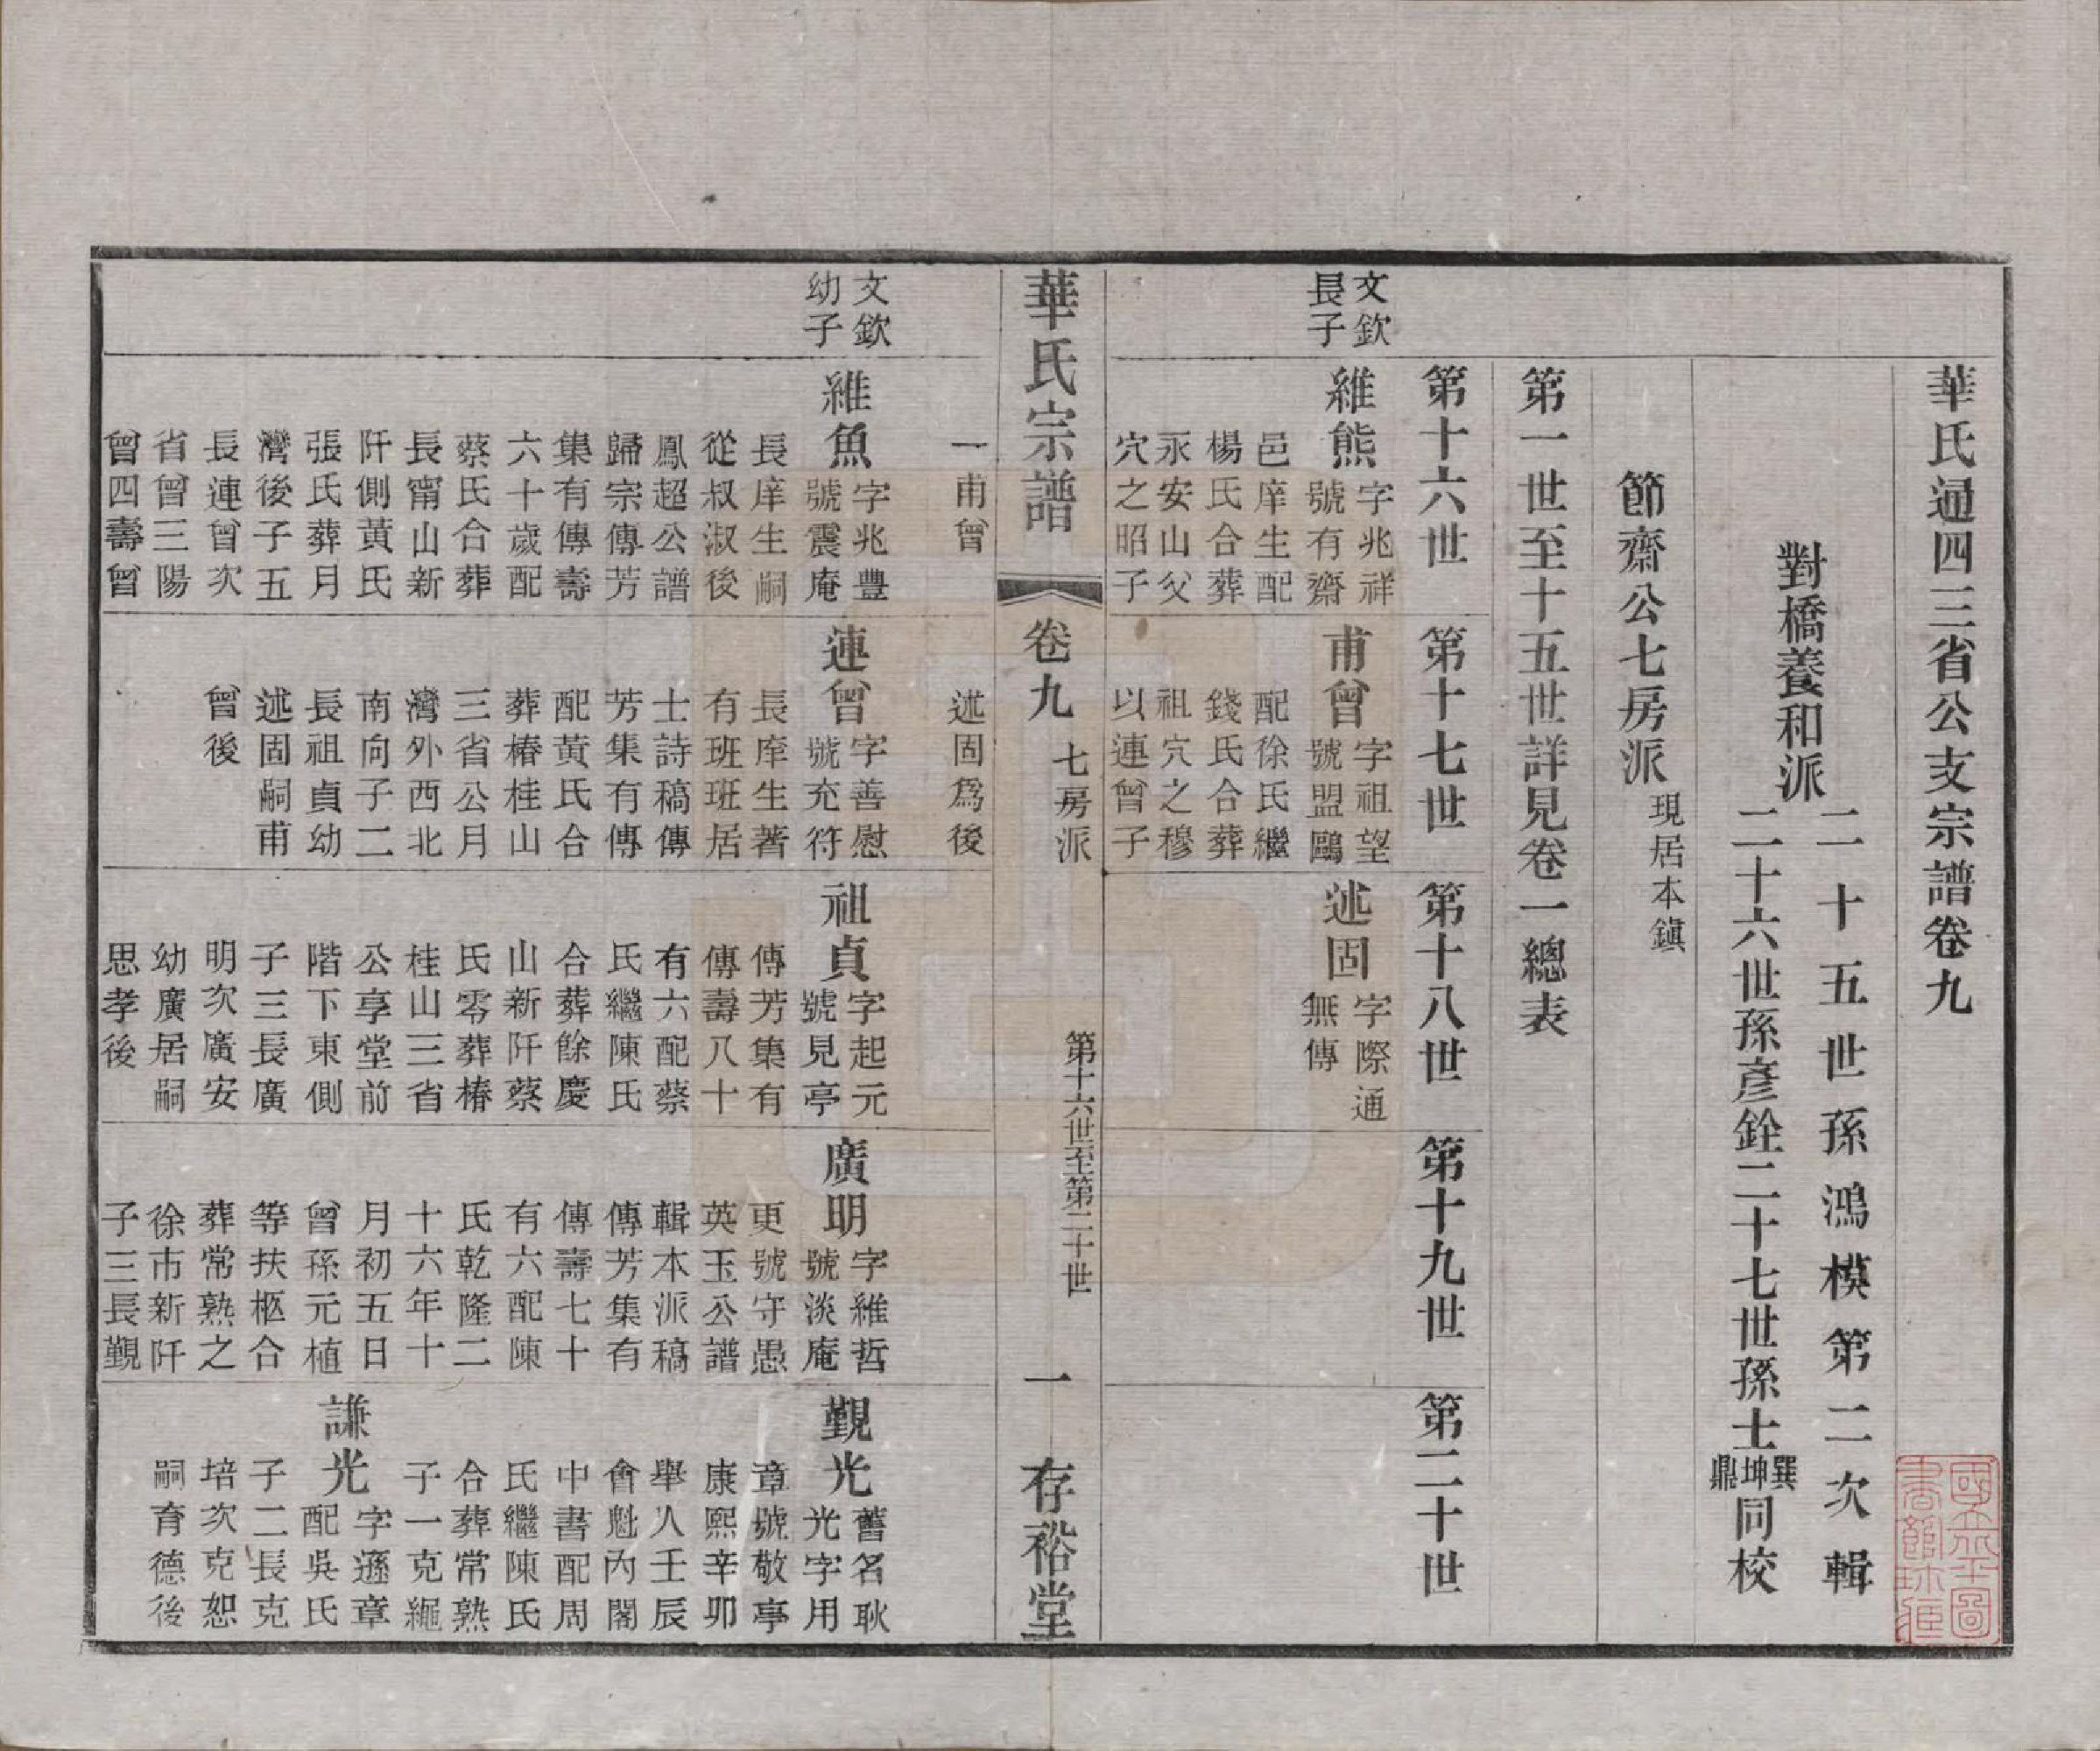 華氏通四三省公支宗譜卷九
二十五世孫鴻模第二次輯
對橋養和派
二十六世孫彥銓二十七世孫士巽坤鼎同校
節齋公七房派現居本鎮
第一世至十五世詳見卷一總表
第十六世
第十七世
第十八世
第十九世
第二十世
文欽
長子
維熊字兆祥
號有齋
邑庠生配
楊氏合葬
永安山父
穴之昭子
甫曾字祖望
號盟鷗
配徐氏繼
錢氏合葬
祖穴之穆
以連曾子
述固字際通
無傳
華氏宗譜
卷九
七房派
第十六世至第二十世
一
存裕堂
一甫曾
述固為後
文欽
幼子
維魚字兆豐
號震庵
長庠生嗣
從叔淑後
鳳超公譜
歸宗傳芳
集有傳壽
六十歲配
蔡氏合葬
長甯山新
阡側黃氏
張氏葬月
灣後子五
長連曾次
省曾三陽
曾四壽曾
連曾字善慰
號充符
長庠生著
有班班居
士詩稿傳
芳集有傳
配黃氏合
葬椿桂山
三省公月
灣外西北
南向子二
長祖貞幼
述固嗣甫
曾後
祖貞字起元
號見亭
傳芳集有
傳壽八十
有六配蔡
氏繼陳氏
合葬餘慶
山新阡蔡
氏零葬椿
桂山三省
公享堂前
階下東側
子三長廣
明次廣安
幼廣居嗣
思孝後
廣明字維哲
號淡庵
更號守愚
英玉公譜
輯本派稿
傳芳集有
傳壽七十
有六配陳
氏乾隆二
十六年十
月初五日
曾孫元植
等扶柩合
葬常熟之
徐市新阡
子三長覲
覲光舊名耿
光字用
章號敬亭
康熙辛卯
舉人壬辰
會魁內閣
中書配周
氏繼陳氏
合葬常熟
子一克繩
謙光字遜章
配吳氏
子二長克
培次克恕
嗣育德後